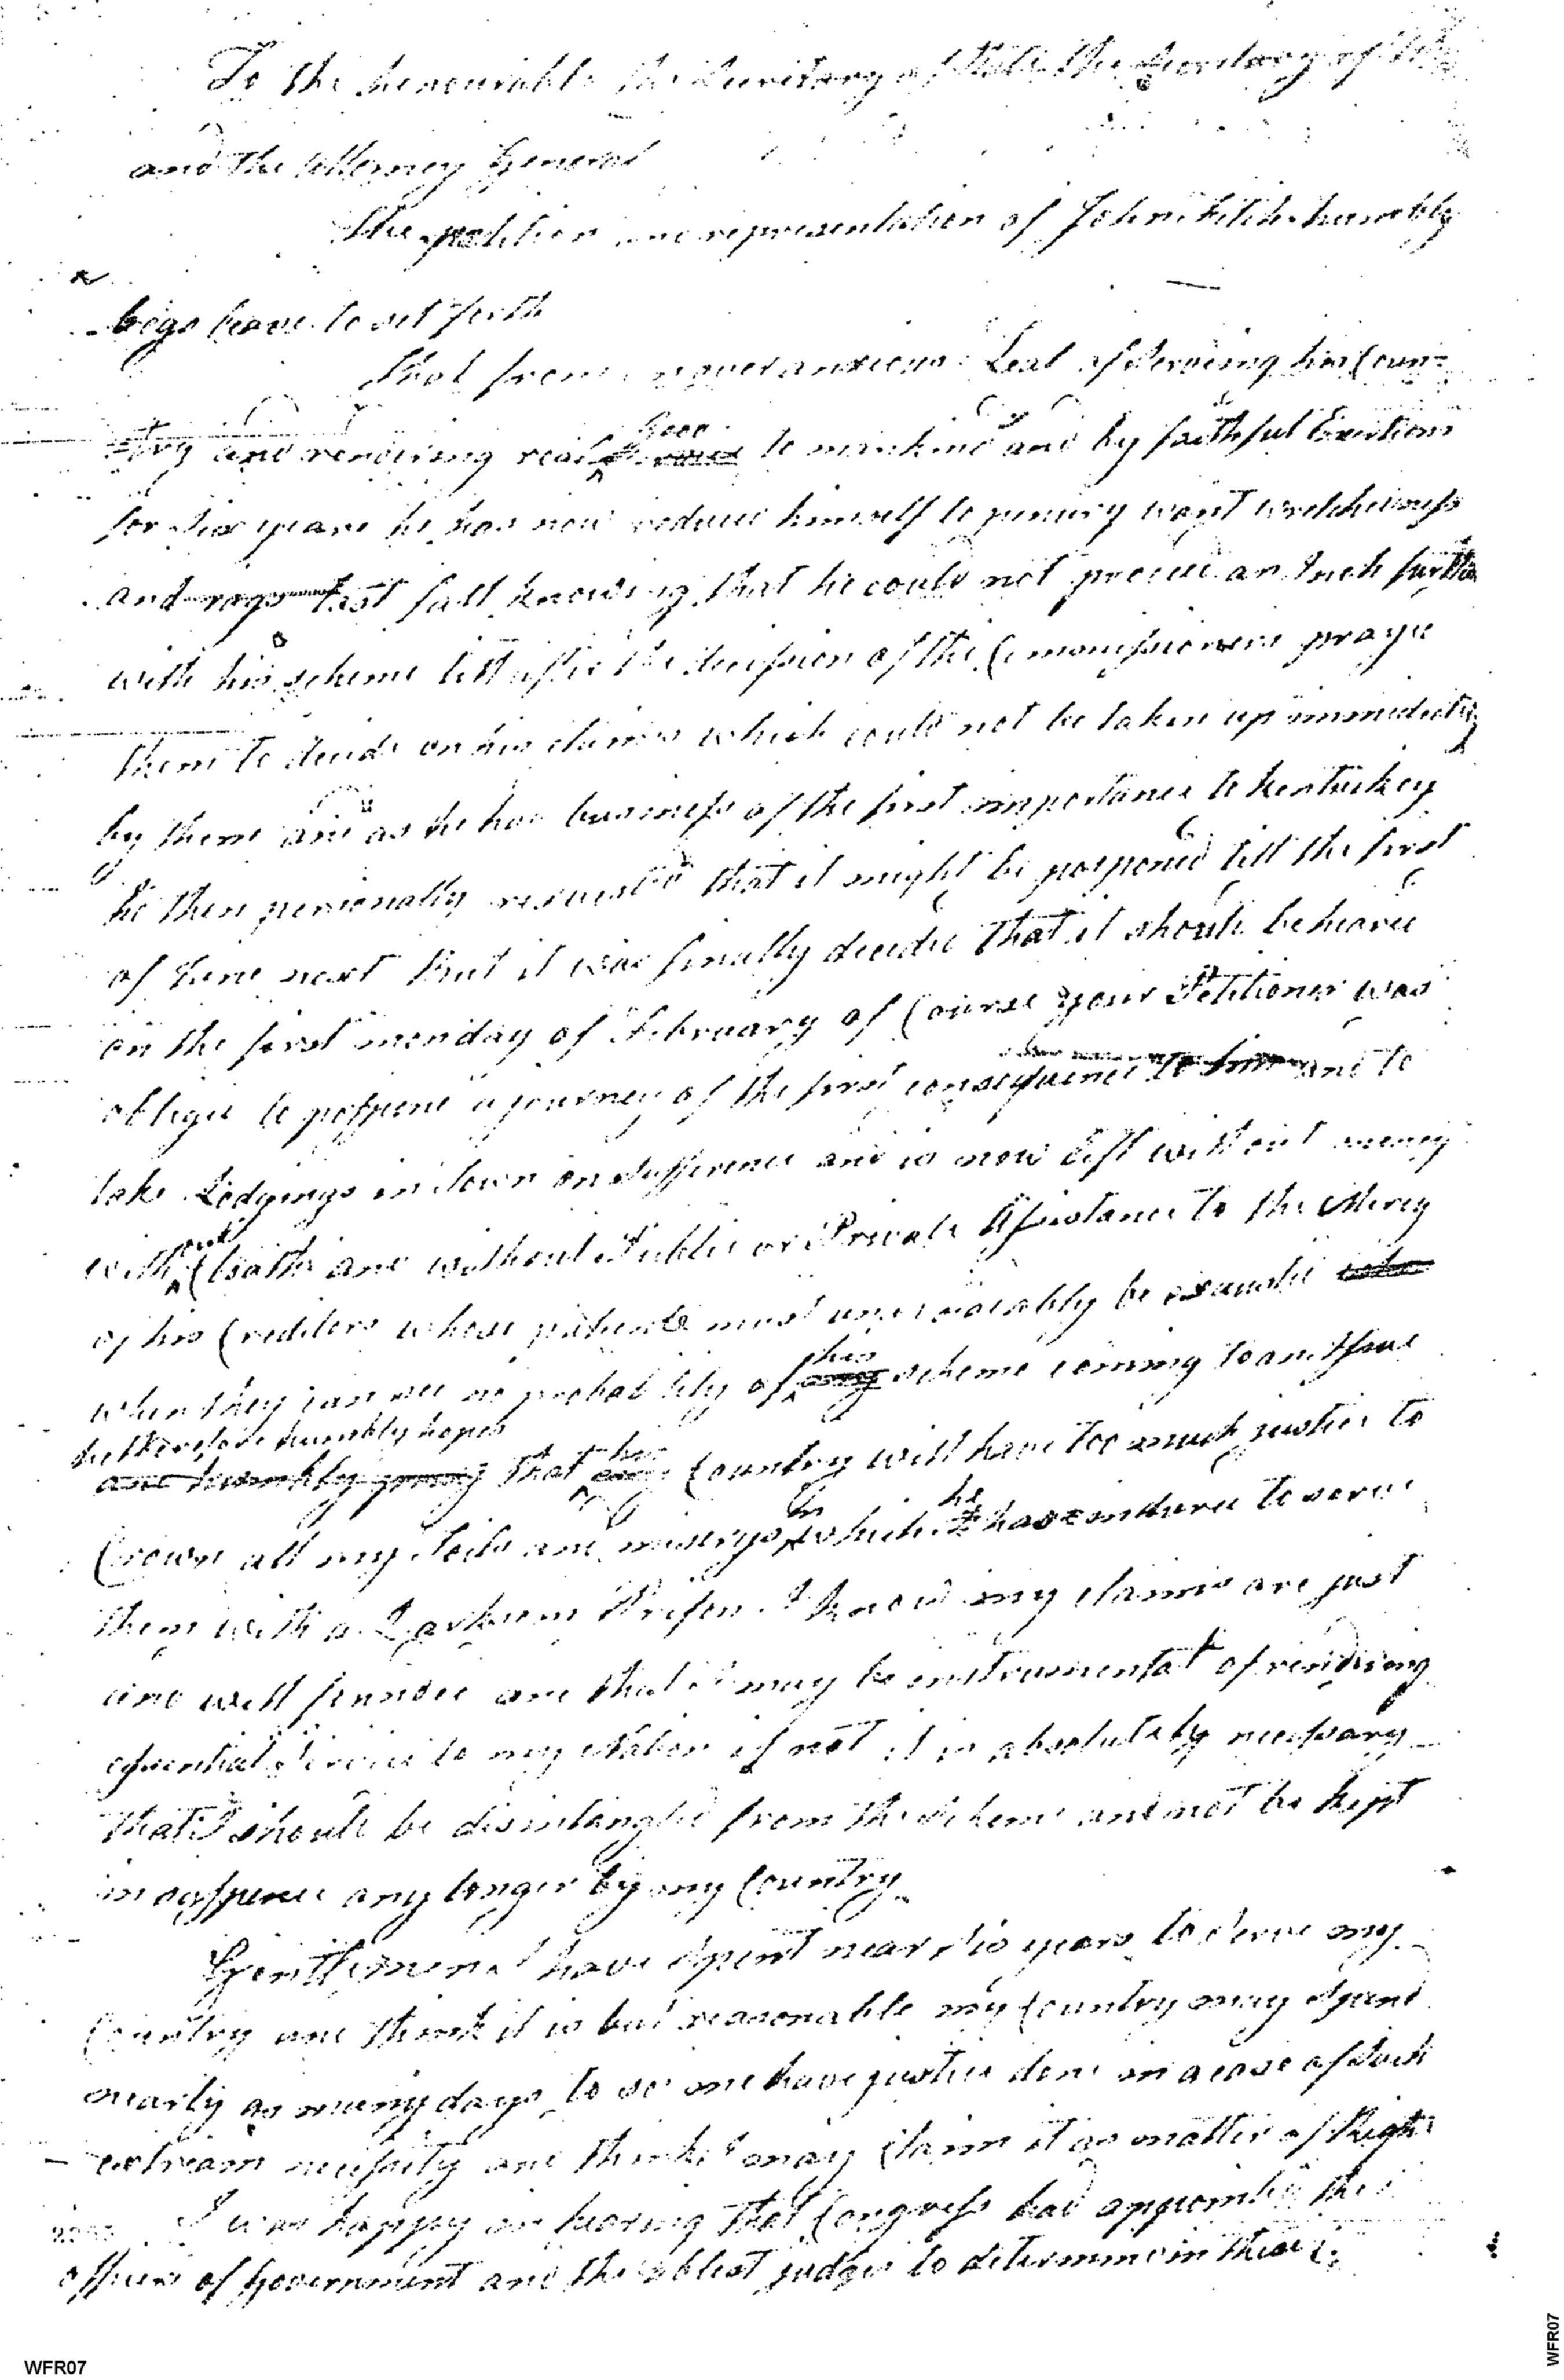 To the honourable the Secretary of State the Secretary of War
and the Attorney General
The petition and representation of John Fitch humbly
begs leave to set forth
That from an over anxious Zeal of Serveing his Coun=
=try and rendiring real good to mankind and by faithful Exertions
for six years he has now reduced himself to penury want wretchedness
and rags last fall knowing that he could not proceed an Inch further
with his scheme till after the decission of the Commissioners prayed
them to decide on his claims which could not be taken up immediately
by them and as he had business of the first importance to Kentuckey
he then personally requested that it might be posponed till the first
of June next But it was finally decided that it should be heared
on the first monday of February of Course your Petitioner was
obliged to postpone a journey of the first consequence to him and to
take Lodgings in Town on Sufference and is now left without money
without Cloaths and without Public or Private Assistance to the Mercy
of his Creditors whose patience must unavoidably be exausted
when they can see no probability of his scheme coming to an Issue
he therefore humbly hopes
and humbly pray that his Country will have too much justice to
Crown all my Toils and miserys in which he has endured to serve
them with a Larksom Prison. I know my claims are just
and well founded and that I may be instrumental of rendiring
essential Service to my Nation if not it is absolutely necessary
that I should be disintangled from the Scheme and not be kept
in suspence any longer by my Country
Gentlemen I have Spent near six years to Serve my
Country and think it is but reasonable my Country may Spend
nearly as many days to see me have justice done in a case of such
extream necessity and think I may Claim it as matter of Right
I was happy on hearing that Congress had appointed the
officers of Government and the ablest judges to determine in these
WFR07
WFR07